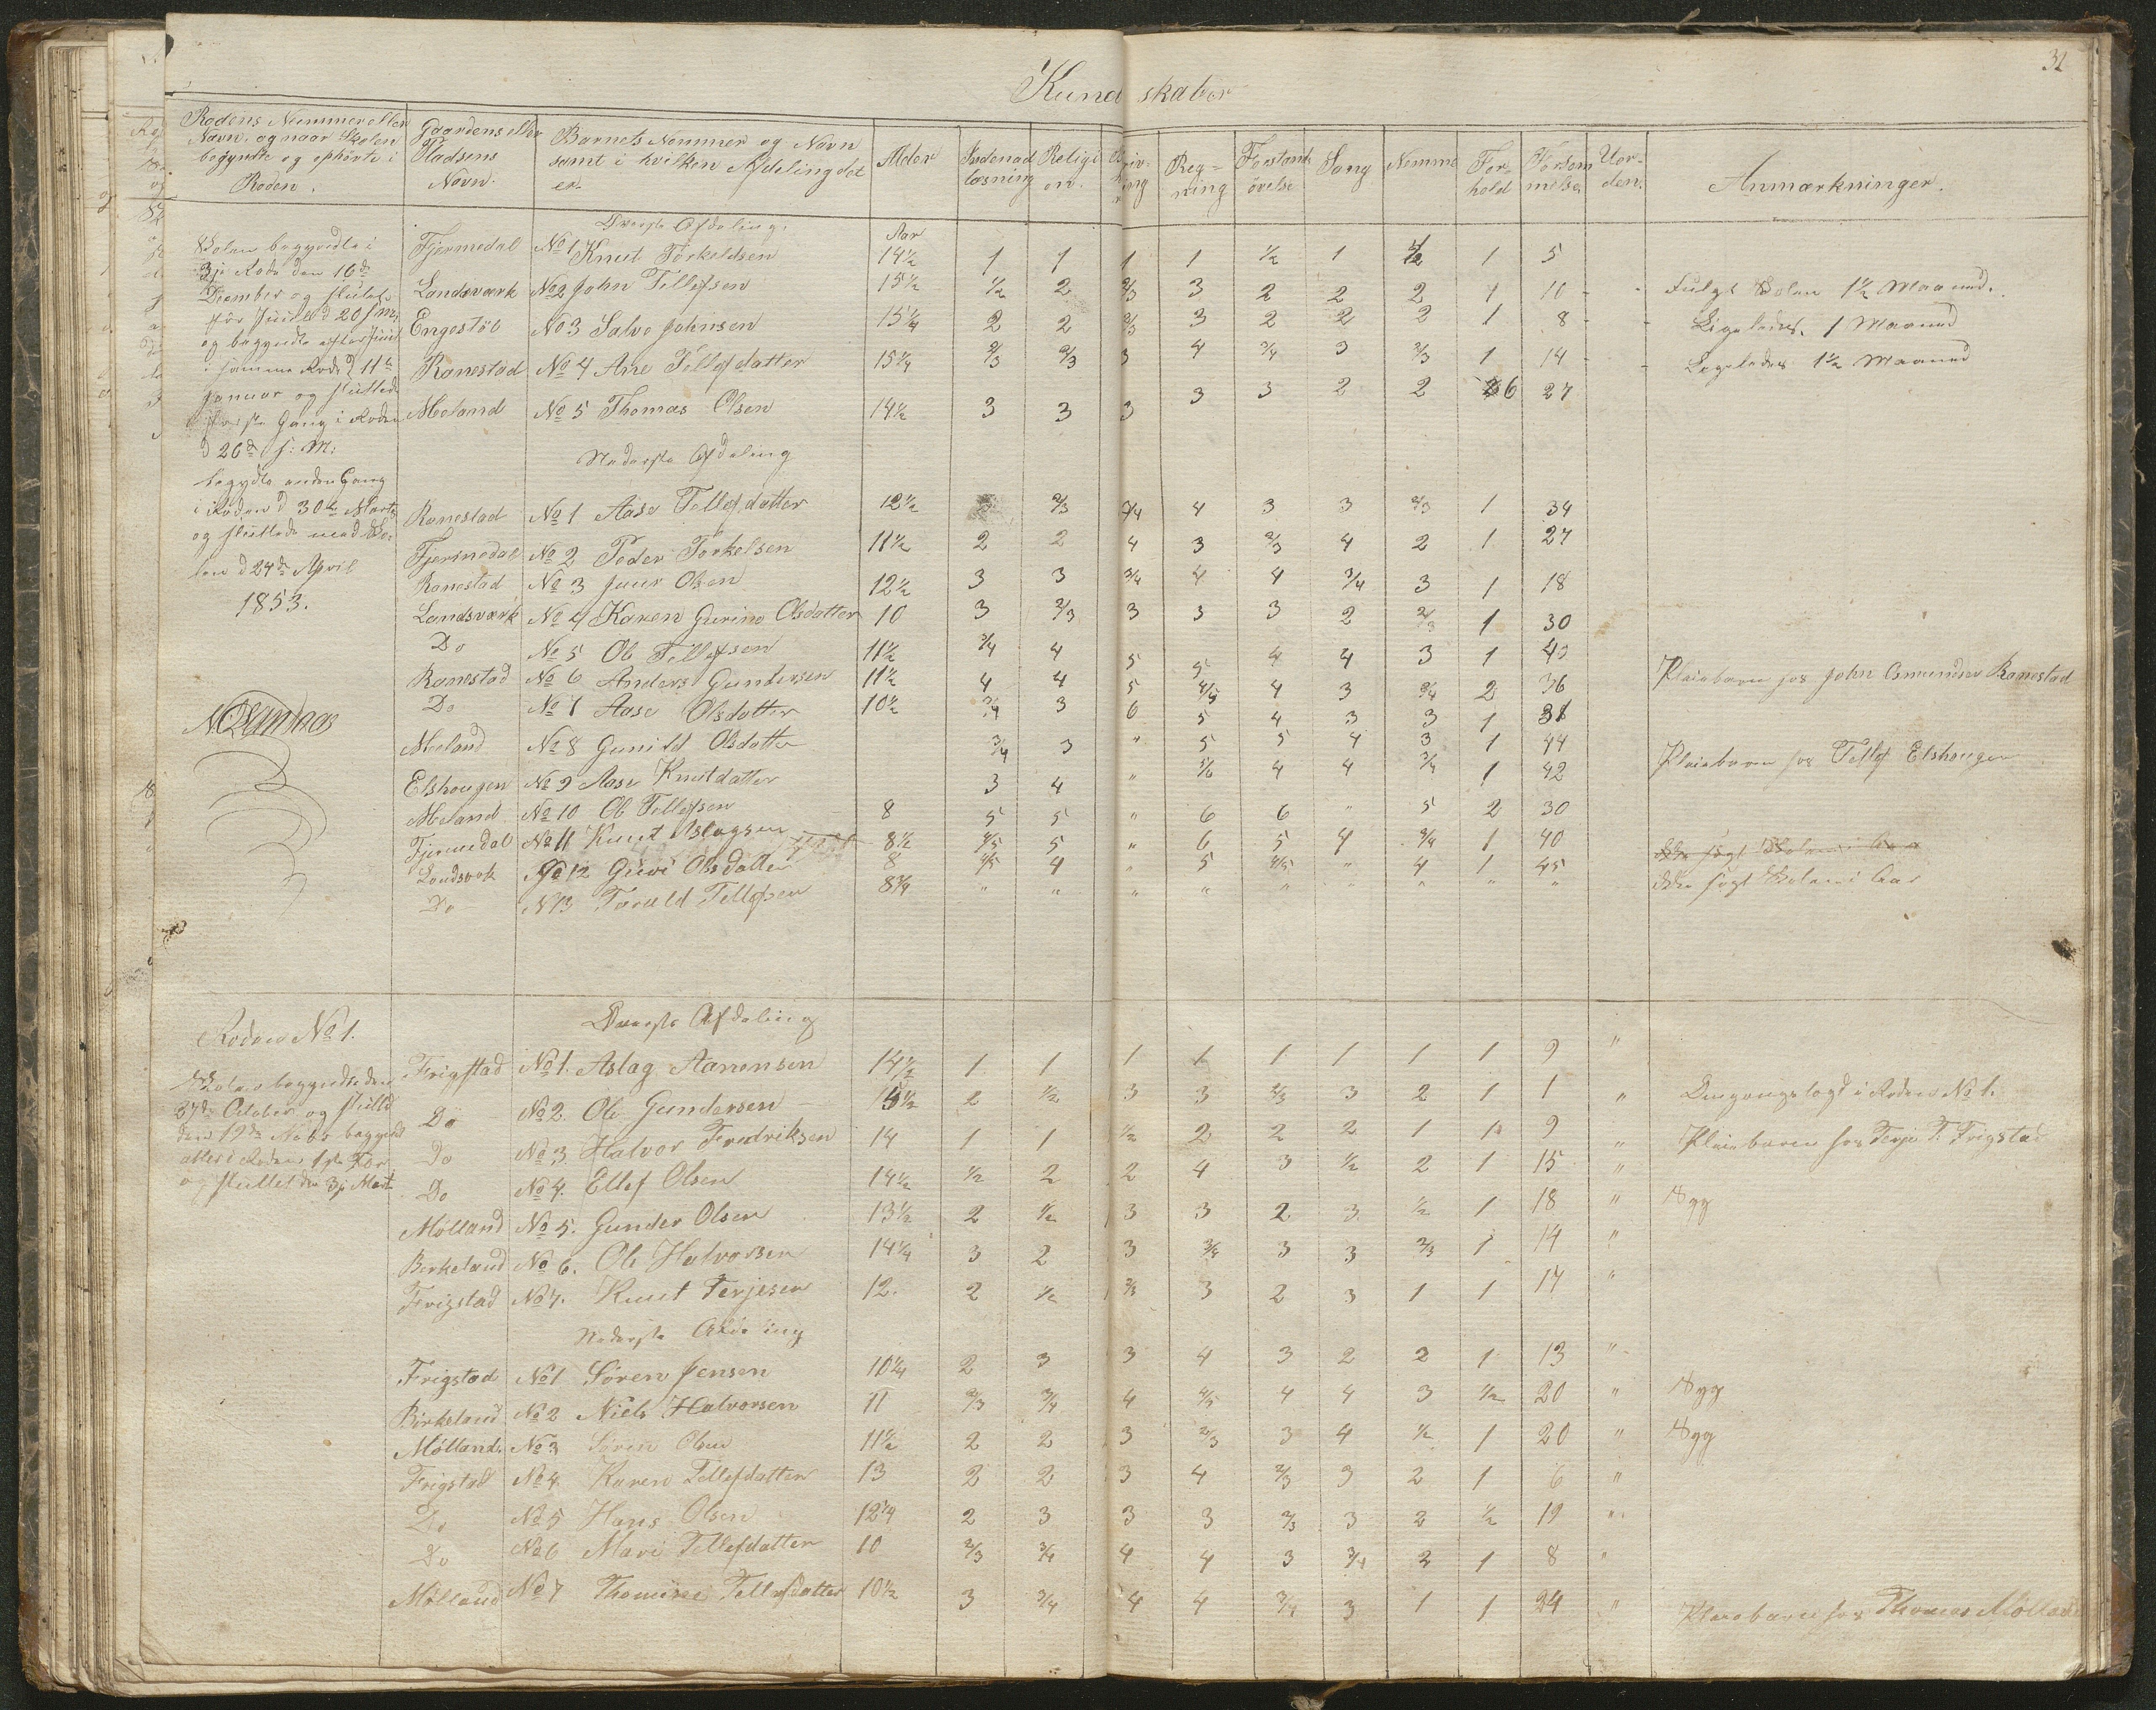 31
Kundskaber
Rodens Nummer eller Navn, og naar Skolen begyndte og ophörte i Roden. | Gaardens eller Pladsens Navn. | Barnets Nommer og Navn samt i hvilken Afdeling det er. | Alder | Indenadlæsning | Religion. | Regning | Forstandsövelse | Sang | Nemme | Forhold | Forsömmelser | Uorden. | Anmærkninger.
Skolen begyndte i
3je Rode den 16de
December og sluttet
för Juul d 20 s. m.
og begyndte efter Juul
i samme Rode d 11te
Januar og sluttede
förste Gang i Roden
d 26de s: M:
begyndte anden Gang
i Roden d 30te Marts
og sluttede med Sko-
len d 24de April
1853.
Överste Afdeling.
Aar
Fjermedal No 1 Knut Torkeldsen 14½ 1 1 1 1 ½ 1 1 5
Landsværk No 2 John Tellefsen 15½ ½ 2 2/3 3 2 2 2 1 10 Fulgt Skolen 1½ Maaned.
Engestöl No 3 Salve Johnsen 15¼ 2 2 2/3 3 2 2 2 1 8 Ligeledes 1 Maaned
Ranestad No 4 Ane Tellefsdatter 15¼ 2/3 2/3 3 4 3/4 3 2/3 1 14 Ligeledes 1½ Maaned
Moland No 5 Thomas Olsen 14½ 3 3 3 3 3 2 2 6 27
Nederste Afdeling
Ranestad No 1 Aase Tellefsdatter 12½ 3 2/3 3/4 4 3 3 2/3 1 34
Fjermedal No 2 Peder Torkelsen 11½ 2 2 4 3 2/3 4 2 1 27
Ranestad No 3 Juur Olsen 12½ 3 3 3/4 4 4 3/4 3 1 18
Landsværk No 4 Karen Gurine Olsdatter 10 3 2/3 3 3 3 2 2/3 1 30
Do No 5 Ole Tellefsen 11½ 3/4 4 5 5 4 4 3 1 43
Ranestad No 6 Anders Gundersen 11½ 4 4 5 4/5 4 3 3/4 2 36 Pleiebarn hos John Osmundsen Ranestad
Do No 7 Aase Olsdatter 10½ 3/4 3 6 5 4 3 3 1 38
Moland No 8 Gunild Olsdatter 3/4 3 " 5 5 4 3 1 44
Elshougen No 9 Aase Knutdatter 3 4 " 5/6 4 4 3/4 1 42 Pleiebarn hos Tellef Elshougen
Moland No 10 Ole Tellefsen 8 5 5 " 6 6 " 5 2 30
Fjermedal No 11 Knut Aslagsen 8½ 4/5 5 " 6 5 4 3/4 1 40 Ikke sögt Skolen i Aar
Landsvrk No 12 Guri Olsdatter 8 4/5 4 " 5 4/5 " 4 1 45
Do N13 Torald Tellefsen 8¾ " " " " " " " " " Ikke sögt Skolen i Aar
Roden No 1.
Skolen begyndte den
27de October og sluttet
den 19de Novbr begyndt
atter i Roden 1ste Febr
og sluttet den 3je Mart
Överste Afdeling
Frigstad No 1. Aslag Aanensen 14½ 1 1 1 1 1 1 1 1 9 "
Do No 2. Ole Gundersen 15½ 2 ½ 3 3 2/3 3 2 1 1 " Omgangslagt i Roden No 1.
Do No 3 Halvor Fredriksen 14 1 1 ½ 2 2 2 1 1 9 " Pleiebarn hos Terje T. Frigstad
Do No 4. Ellef Olsen 14½ ½ 2 2 4 3 ½ 2 1 15 "
Mölland No 5. Gunder Olsen 13½ 2 ½ 3 3 2 3 ½ 1 18 " Syg
Birkeland No 6. Ole Halvorsen 14¼ 3 2 3 3/4 3 3 2/3 1 14 "
Frigstad No 7. Knut Terjesen 12. 2 ½ 2/3 3 2 3 1 1 17 "
Nederste Afdeling
Frigstad No 1 Sören Jensen 10¼ 2 3 3 4 3 2 2 1 13 "
Birkeland No 2 Niels Halvorsen 11 2/3 3/4 4 4/5 4 4 3 ½ 20 " Syg
Mölland. No 3 Sören Olsen 11½ 2 2 3 2/3 3 4 ½ 1 20 " Syg
Frigstad No 4 Karen Tellefdatter 13 2 2 3 4 2/3 3 2 1 6 "
Do No 5 Hans Olsen 12¼ 2 3 3 3 2/3 3 2 ½ 19 "
Do No 6 Mari Tellefdatter 10 2/3 3/4 4 4 3 3/4 2 1 8 "
Mölland No 7 Thomine Tellefsdatter 10½ 3 3/4 4 4 3/4 3 1 1 24 " Pleiebarn hos Thomas Mölland